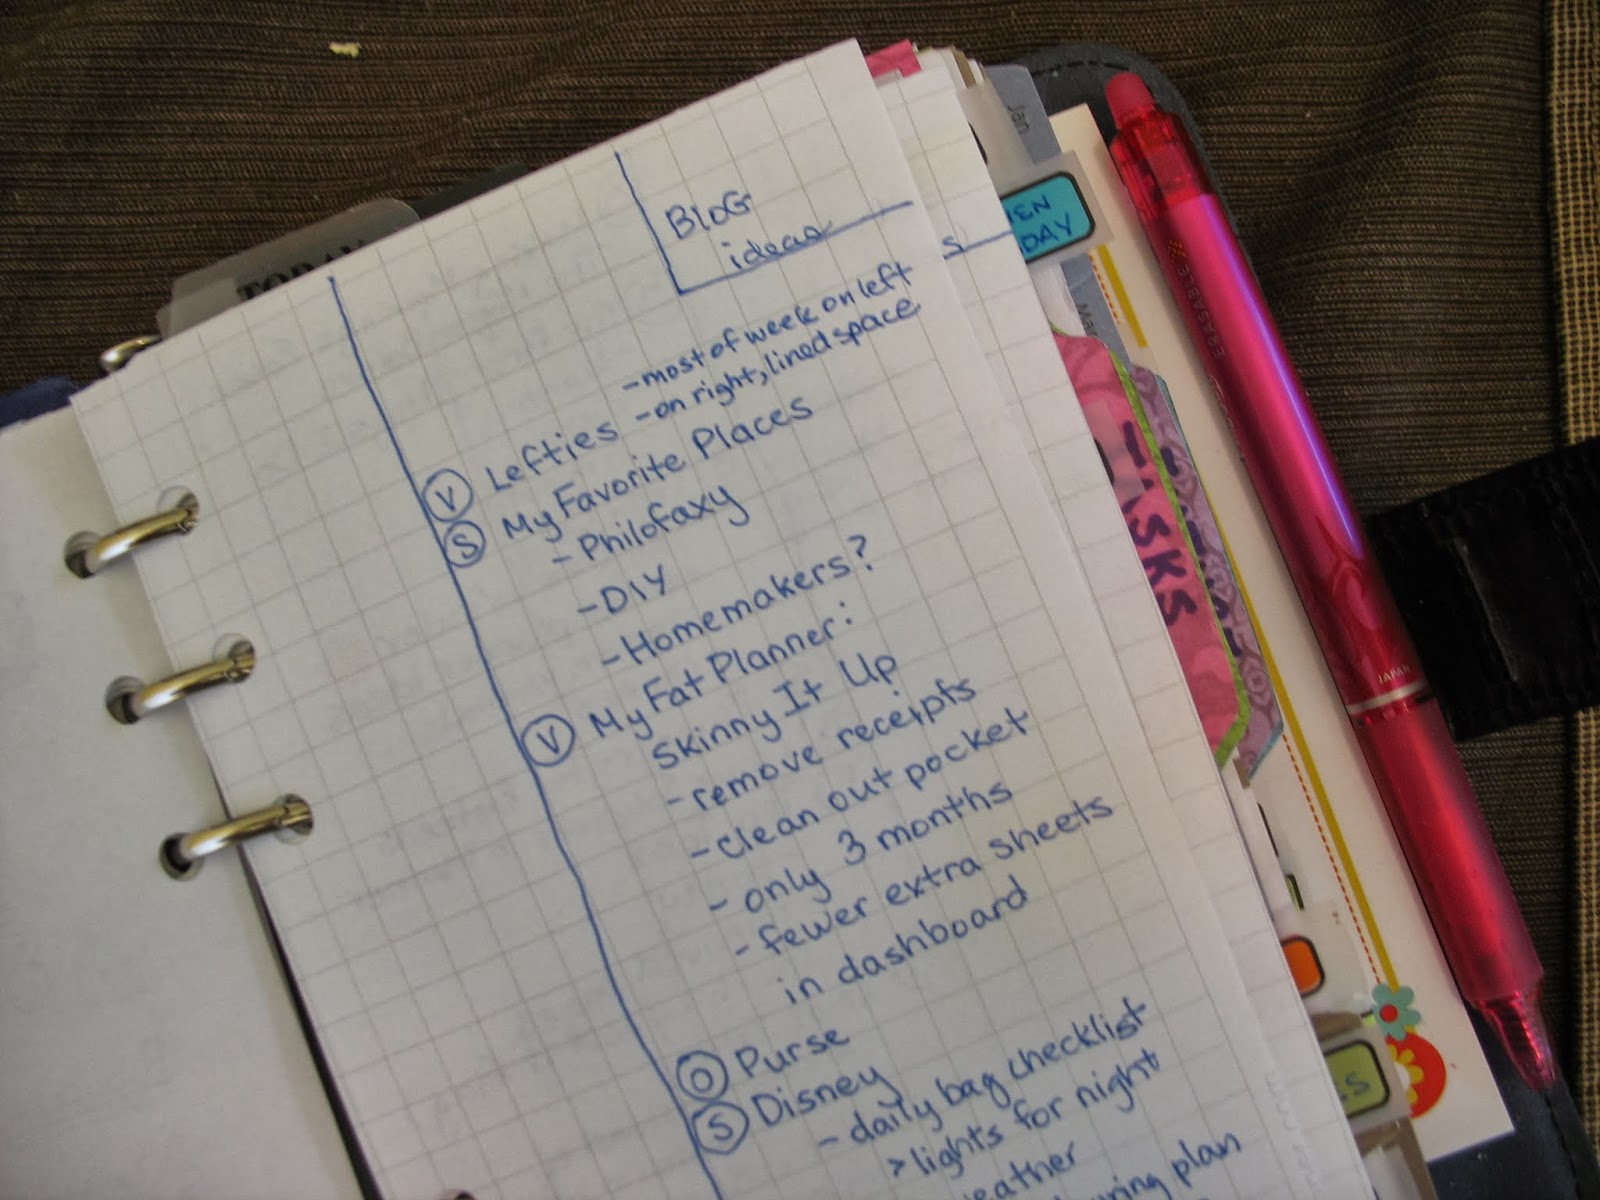 BloG
ideas
- most of week on left
- on right, lined space
V Lefties
S My Favorite Places
- Philofaxy
- DIY
- Homemakers?
V My Fat Planner:
Skinny It Up
- remove receipts
- clean out pocket
- only 3 months
- fewer extra sheets
in dashboard
O Purse
S Disney
- daily bag checklist
> lights for night
plan
TODAY
s
Jan
DAY
TASKS
ERASABLE
JAPAN